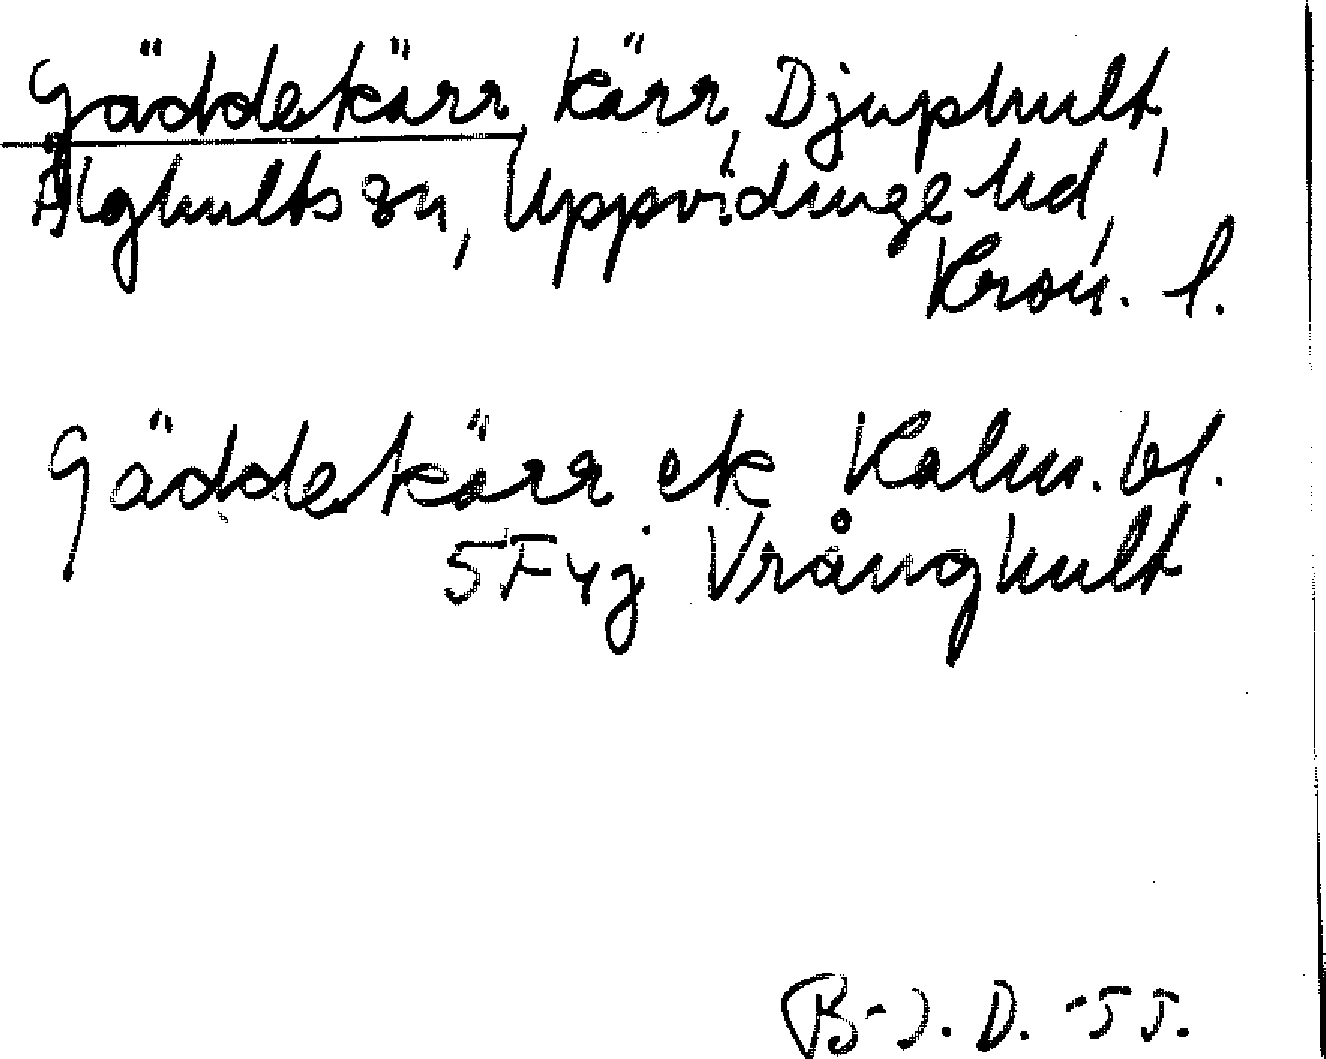 Gäddekärr, kärr, Djuphult,
Älghults sn, Uppvidinge hd,
Kron. l.
Gäddekärr ek Kalm. bl.
5F4j Vrånghult
B-J. D. -55.